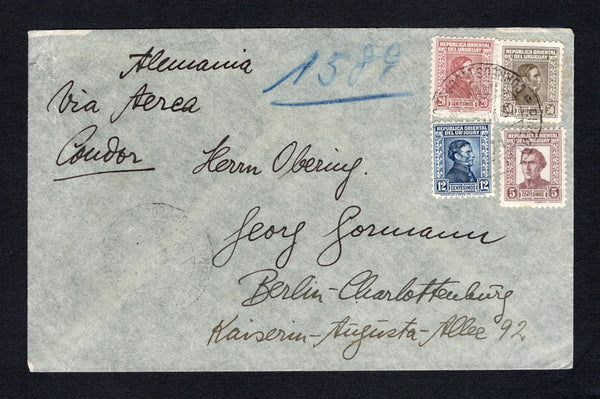 Alemania
Via Aerea
Condor
1589
REPUBLICA ORIENTAL
DEL URUGUAY
CENTESIMOS
REPUBLICA ORIENTAL
DEL URUGUAY
REPUBLICA ORIENTAL
DEL URUGUAY
12 CENTESIMOS 12
REPUBLICA ORIENTAL
DEL URUGUAY
5 CENTESIMOS 5
Herrn Obering.
Georg Gormann
Berlin-Charlottenburg
Kaiserin-Augusta-Allee 92